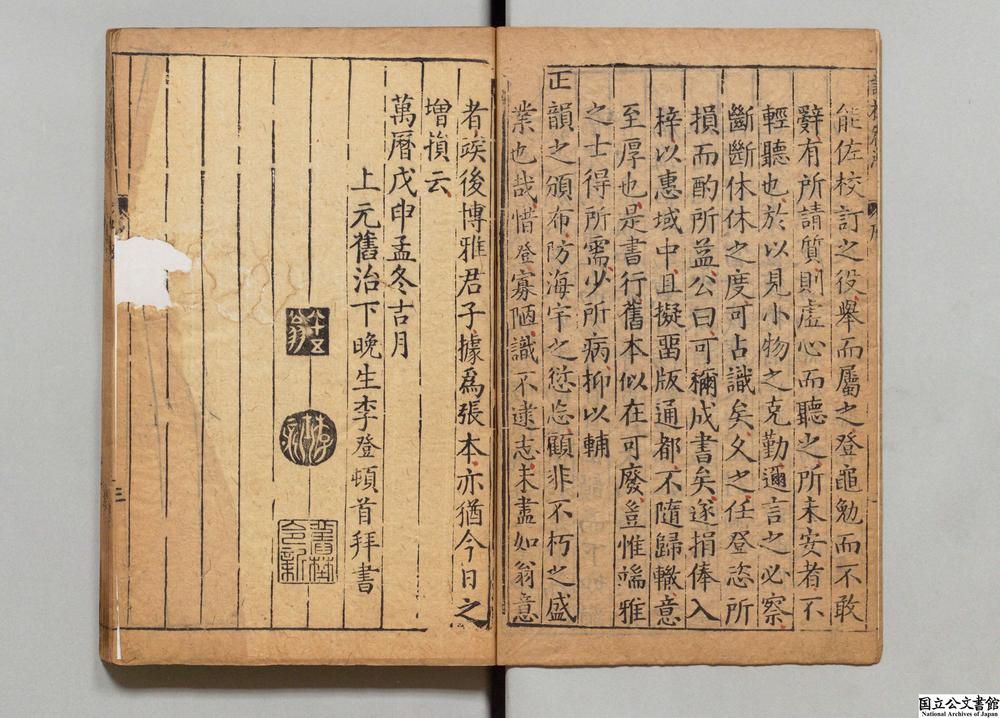 能佐校訂之役舉而屬之登黽勉而不敢
辭有所請質則虛心而聽之所未安者不
輕聽也於以見小物之克勤邇言之必察
斷斷休休之度可占識矣久之任登恣所
損而酌所益公曰可稱成書矣遂捐俸入
梓以惠域中且擬畱版通都不隨歸轍意
至厚也是書行舊本似在可廢豈惟端雅
之士得所需少所病抑以輔
正韻之頒布防海宇之愆忘顧非不朽之盛
業也哉惜登寡陋識不逮志未盡如翁意
者竢後博雅君子據爲張本亦猶今日之
增損云
萬曆戊申孟冬吉月
上元舊治下晚生李登頓首拜書
八十五翁
李登
三
国立公文書館
National Archives of Japan